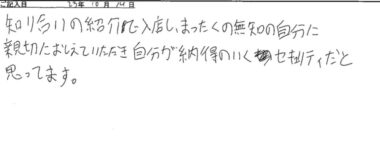 ご記入日 23年10月14日
知り合いの紹介で入店し、まったくの無知の自分に
親切におしえていただき自分が納得のいくセキュリティだと
思ってます。